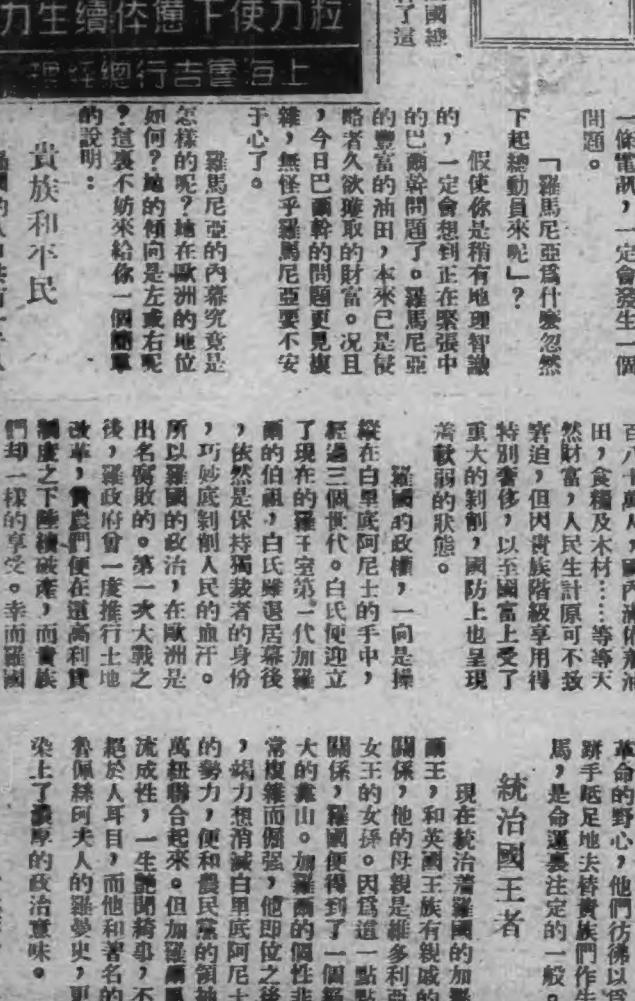 粒力使下應体續生力
上海書吉行總經理
國總
了這
一條電訊,一定會發生一個
問題。
「羅馬尼亞爲什麼忽然
下起總動員來呢」?
假使你是稍有地理智識
的,一定會想到正在緊張中
的巴爾幹問題了。羅馬尼亞
的豐富的油田,本來已是侵
略者久欲獲取的財富。况且
,今日巴爾幹的問題更見複
雜,無怪乎羅馬尼亞要不安
于心了。
羅馬尼亞的內幕究竟是
怎樣的呢?她在歐洲的地位
如何?她的傾向是左或右呢
?這裏不妨來給你一個簡單
的說明:
貴族和平民
百八十萬人,國內滿佈着油
田,食糧及木材……等等天
然財富,人民生計原可不致
窘迫,但因貴族階級享用得
特別奢侈,以至國富上受了
重大的剝削,國防上也呈現
着軟弱的狀態。
羅國的政權,一向是操
縱在白里底阿尼士的手中,
經過三個世代。白氏便迎立
了現在的羅王室第一代加羅
爾的伯祖,白氏雖退居幕後
,依然是保持獨裁者的身份
,巧妙底剝削人民的血汗。
所以羅國的政治,在歐洲是
出名腐敗的。第一次大戰之
後,羅政府曾一度推行土地
改革,貧農們便在這高利貸
制度之下陸續破產,而貴族
們却一樣的享受。幸而羅國
革命的野心,他們彷彿以爲
胼手胝足地去替貴族們作牛
馬,是命運裏注定的一般
統治國王者
現在統治着羅國的加羅
爾王,和英國王族有親戚的
關係,他的母親是維多利亞
女王的女孫。因爲這一點點
關係,羅國便得到了一個絕
大的靠山。加羅爾的個性非
常複雜而倔强,他即位之後
,竭力想消滅白里底阿尼士
的勢力,便和農民黨的領袖
萬紐聯合起來。但加羅爾風
流成性,一生艷聞綺事,不
絕於人耳目,而他和著名的
魯佩絲阿夫人的羅曼史,更
染上了濃厚的政治意味。